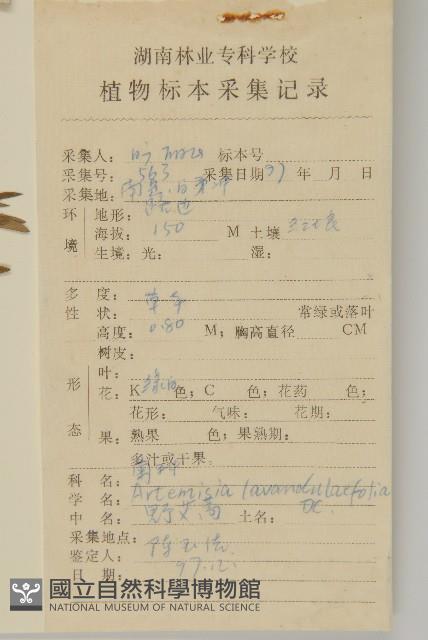 湖南林业专科学校
植物标本采集记录
采集人： 标本号
采集号：563 采集日期 97 年 月 日
采集地：
环境 地形： 路边
海拔： 150 M 土壤
生境：光： 湿：
多度：
性状：草本 常绿或落叶
高度：0.80 M；胸高直径 CM
树皮：
形态 叶：
花：K 绿白 色；C 色；花药 色；
花形： 气味： 花期：
果：熟果 色；果熟期：
多汁或干果。
科名：菊科
学名：Artemisia lavandulaefolia DC.
中名：野艾蒿 土名：
采集地点：
鉴定人：
日期：97.12.
國立自然科學博物館
NATIONAL MUSEUM OF NATURAL SCIENCE